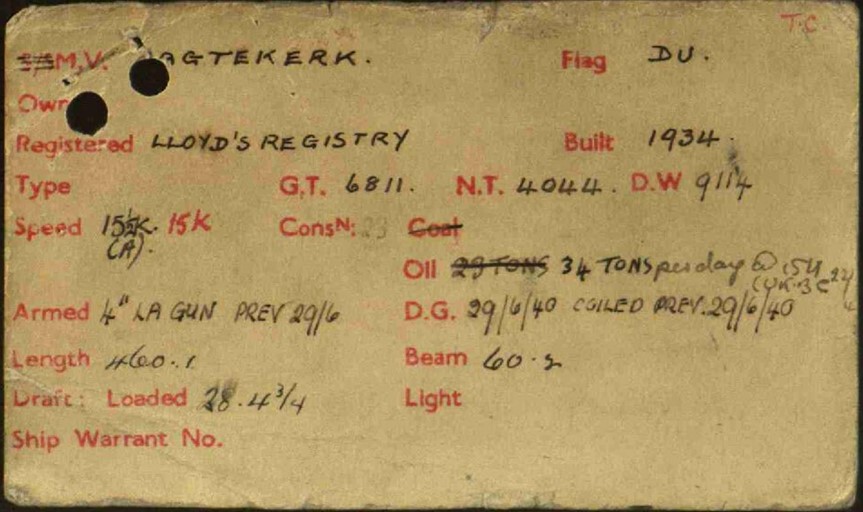 T.C.
M.V. AGTEKERK. Flag DU.
Own
Registered LLOYD'S REGISTRY Built 1934.
Type G.T. 6811. N.T. 4044. D.W 9114
Speed 15½K. 15K Consᴺ: 23 Coal
(A).
Oil 29 TONS 34 TONS per day @
Armed 4" LA GUN PREV 29/6 D.G. 29/6/40 COILED PREV. 29/6/40
Length 460.1 Beam 60.2
Draft: Loaded 28.4 3/4 Light
Ship Warrant No.